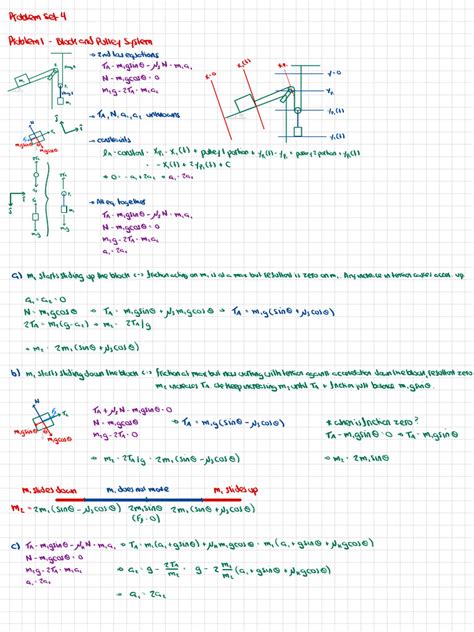 Problem Set 4
Problem 1 - Block and Pulley System
→ 2nd law equations
T_A - m₁gsinθ - μ_sN = m₁a₁
N - m₁gcosθ = 0
m₂g - 2T_A = m₂a₂
→ T_A, N, a₁, a₂ unknowns
→ constraints
= 0 = -a₁ + 2a₂ → a₁ = 2a₂
→ All eq. together
T_A - m₁gsinθ - μ_sN = m₁a₁
N - m₁gcosθ = 0
m₂g - 2T_A = m₂a₂
a₁ = 2a₂
a) m₁ starts sliding up the block <-> friction acting on m₁ is at a max but resultant is zero on m₁. Any increase in tension causes accel. up
a₁ = a₂ = 0
N = m₁gcosθ → T_A = m₁gsinθ + μ_sm₁gcosθ → T_A = m₁g(sinθ + μ_scosθ)
2T_A = m₂(g - a₂) → m₂ = 2T_A/g
→ m₂ = 2m₁(sinθ + μ_scosθ)
b) m₁ starts sliding down the block <-> friction at max but now acting with tension against acceleration down the block, resultant zero
m₂ increases T_A so keep increasing m₂ until T_A + friction just balance m₁gsinθ.
T_A + μ_sN - m₁gsinθ = 0
N - m₁gcosθ = 0
m₂g - 2T_A = 0
→ T_A = m₁g(sinθ - μ_scosθ)
* when is friction zero?
T_A - m₁gsinθ = 0 → T_A = m₁gsinθ
→ m₂ = 2T_A/g = 2m₁(sinθ - μ_scosθ)
→ m₂ = 2m₁sinθ
m₁ slides down m₁ does not move m₁ slides up
m₂ = 2m₁(sinθ - μ_scosθ) 2m₁sinθ 2m₁(sinθ + μ_scosθ)
(F_f = 0)
c) T_A - m₁gsinθ - μ_kN = m₁a₁ → T_A = m₁(a₁ + gsinθ) + μ_km₁gcosθ = m₁(a₁ + gsinθ + μ_kgcosθ)
N - m₁gcosθ = 0
m₂g - 2T_A = m₂a₂
a₁ = 2a₂
→ a₂ = g - 2T_A/m₂ = g - 2 m₁/m₂ (a₁ + gsinθ + μ_kgcosθ)
→ a₁ = 2a₂